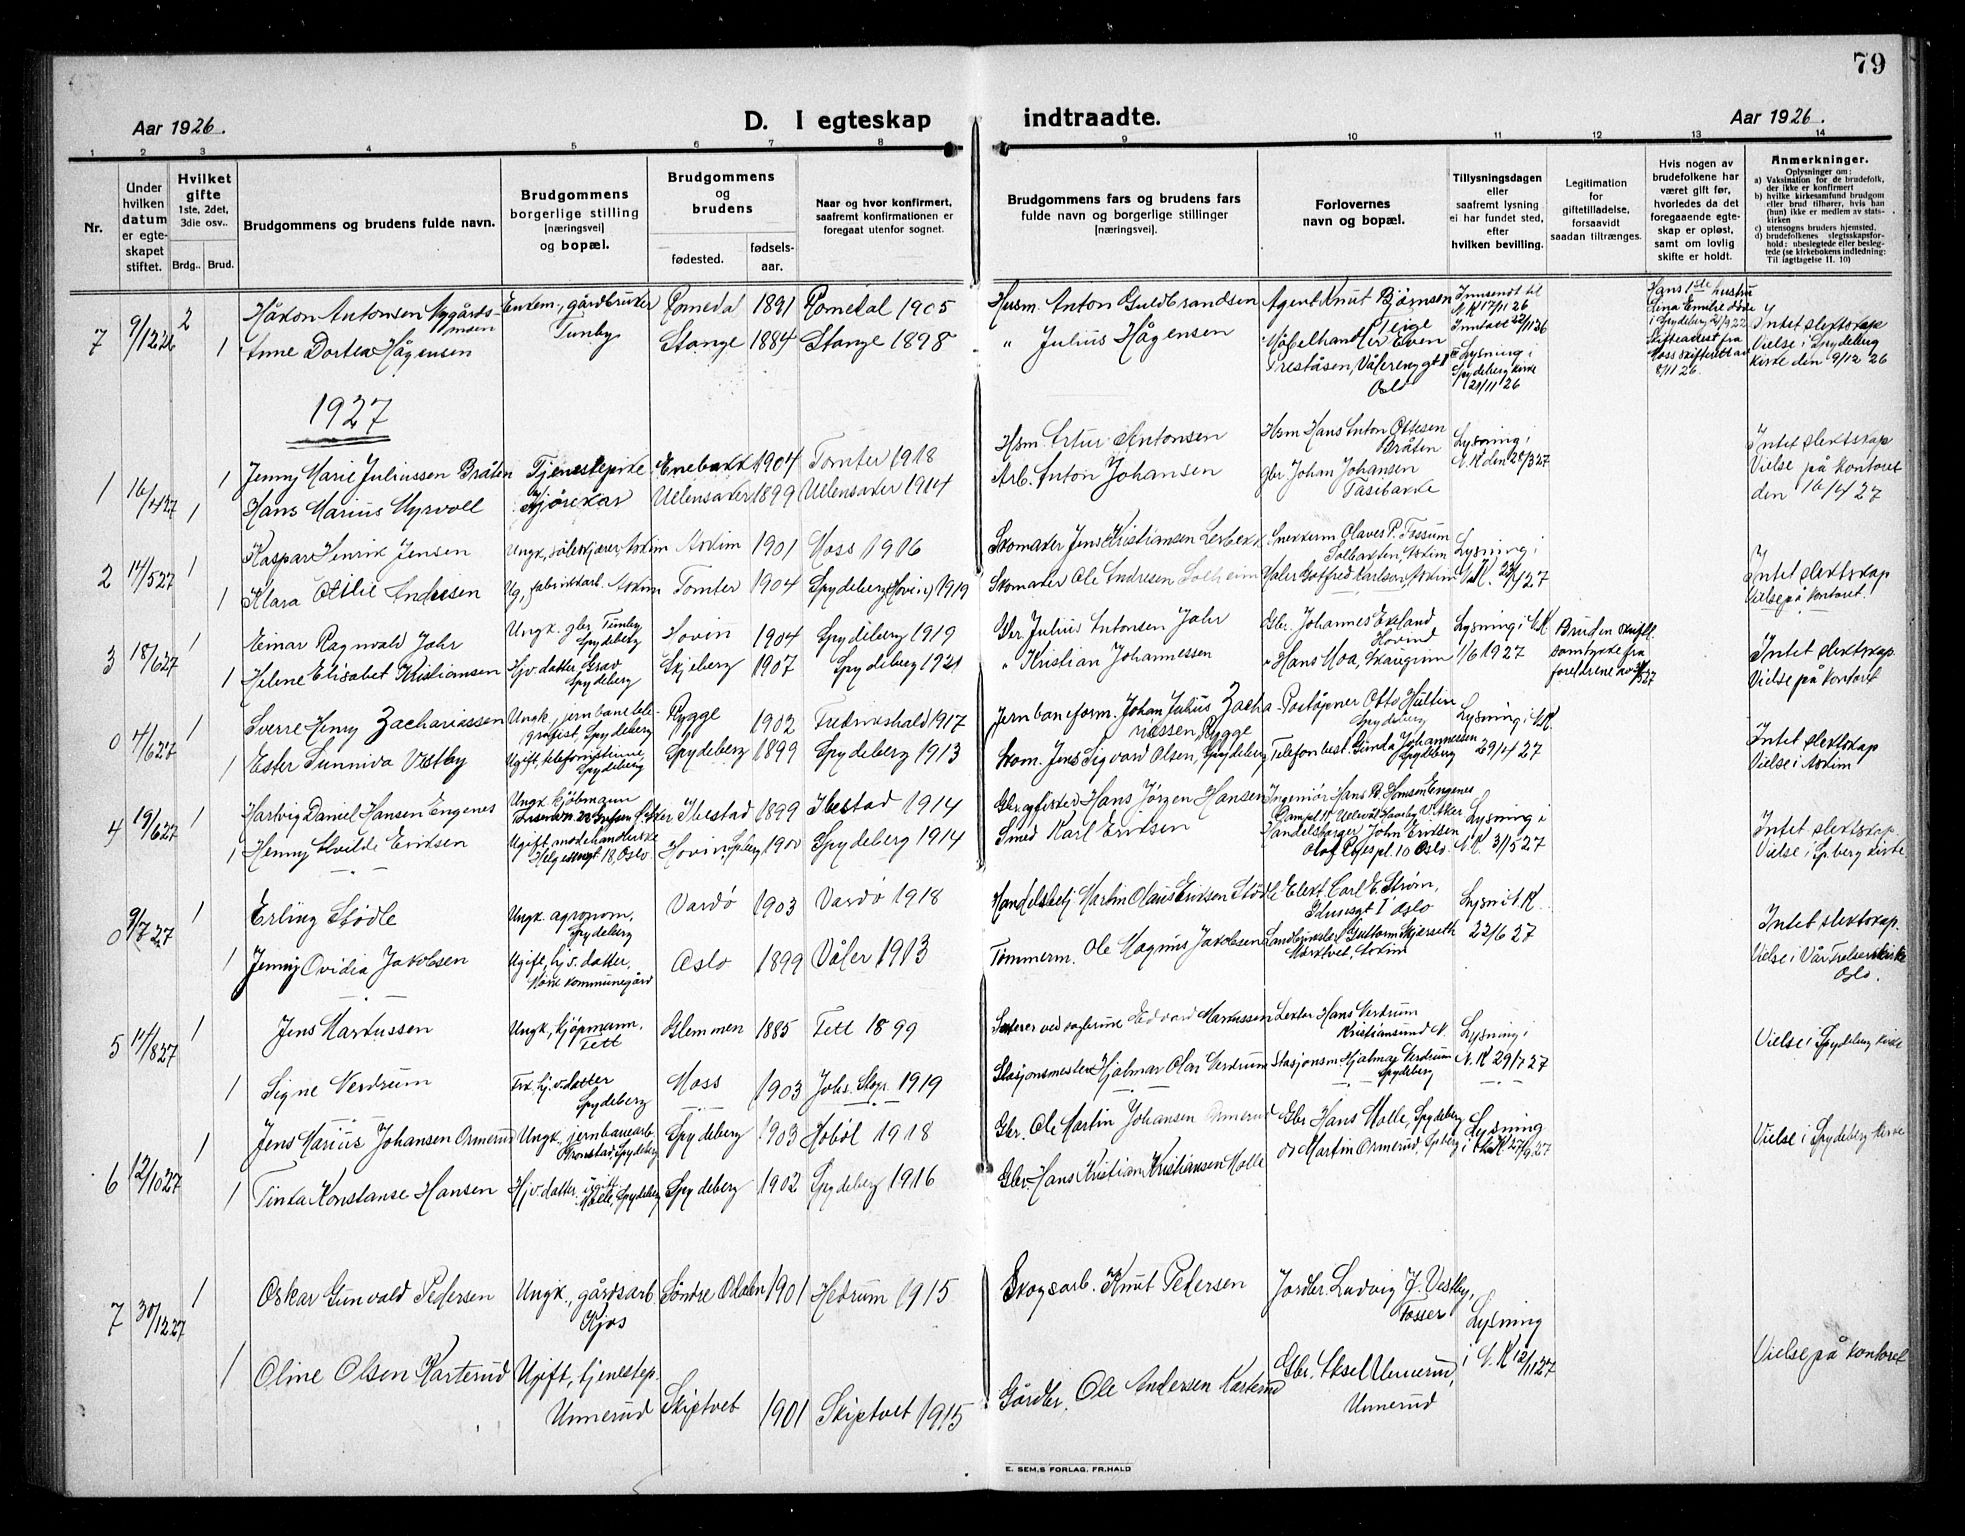 79
Aar 1926.
D. I egteskap indtraadte.
Aar 1926.
1 2 3 4 5 6 7 8 9 10 11 12 13 14
Nr.
Under hvilken datum er egteskapet stiftet.
Hvilket gifte 1ste, 2det, 3die osv..
Brdg.. Brud.
Brudgommens og brudens fulde navn.
Brudgommens borgerlige stilling [næringsvei] og bopæl.
Brudgommens og brudens
fødested. fødsels-aar.
Naar og hvor konfirmert, saafremt konfirmationen er foregaat utenfor sognet.
Brudgommens fars og brudens fars fulde navn og borgerlige stillinger [næringsvei].
Forlovernes navn og bopæl.
Tillysningsdagen eller saafremt lysning ei har fundet sted, efter hvilken bevilling.
Legitimation for giftetilladelse, forsaavidt saadan tiltrænges.
Hvis nogen av brudefolkene har været gift før, hvorledes da det foregaaende egteskap er opløst, samt om lovlig skifte er holdt.
Anmerkninger.
Oplysninger om:
a) Vaksination for de brudefolk, der ikke er konfirmert
b) hvilke kirkesamfund brudgom eller brud tilhører, hvis han (hun) ikke er medlem av statskirken
c) utensogns bruders hjemsted.
d) brudefolkenes slegtsskapsforhold: ubeslegtede eller beslegtede (se kirkebokens indledning: Til iagttagelse II. 10)
7 9/12 26 2 Håkon Antonsen Nygårdsmoen Enkem., gårdbruker Tunby Romedal 1891 Romedal 1905 Husm. Anton Guldbrandsen Agent Knut Bjørnsen Teige Innsendt til N.K 17/11 26 Inntatt 22/11 26
1 Anne Dortea Hågensen Stange 1884 Stange 1898 " Julius Hågensen Møbelhandler Even Preståsen, Vålerenggt 1 Oslo Lysning i Spydeberg kirke 21/11 26
Hans 1ste hustru Spydeberg 2/9 22 Skifteattest fra Moss skifterett av 8/11 26.
Intet slektskap Vielse i Spydeberg kirke den 9/12 26
1927
1 16/4 27 1 Jenny Marie Juliussen Bråten Tjenestepike Enebakk 1904 Tomter 1918 Hsm. Artur Antonsen Hsm Hans Anton Ottesen Bråten Lysning i N.K den 28/3 27
1 Hans Marius Myrvoll Kjørekar Ullensaker 1899 Ullensaker 1914 Arb. Anton Johansen Gbr. Johan Johansen Tasibakke
Intet slektskap Vielse på kontoret den 16/4 27
2 14/5 27 1 Kaspar Henrik Jensen Ungk., Askim Askim 1901 Moss 1916 Skomaker Jens Kristiansen Lerbekk Snekkerm Olaves P. Fossum Solbakken, Askim Lysning i N.K.
1 Klara Otilie Andresen Ug, fabrikkarb. Askim Tomter 1904 Spydeberg (Hovin) 1919 Skomaker Ole Andresen Solheim Maler Gotfred Karlson, Askim
Intet slektskap Vielse på kontoret.
3 18/6 27 1 Einar Ragnvald Jahr Ungk. gbr Tunby Spydeberg Hovin 1904 Spydeberg 1919 Gbr. Julius Antonsen Jahr Gbr. Johannes Ekeland, Hovind Lysning i N.K. 1/6 1927
1 Helene Elisabet Kristiansen Hj. v. datter Spydeberg Skjeberg 1907 Spydeberg 1921 " Kristian Johannessen " Hans Moa, Skaugrim
Bruden skriftl. samtykke fra foreldrene
Intet slektskap Vielse på kontoret
0 4/6 27 1 Sverre Henry Zachariassen Ungk., jernbanetelegrafist, Spydeberg Rygge 1902 Fredrikshald 1917 Jernbaneform. Johan Julius Zachariassen, Rygge Poståpner Otto Hultin Spydeberg Lysning i N.K. 29/4 27
1 Ester Sunniva Vestby Ugift, telefonistinne Spydeberg Spydeberg 1899 Spydeberg 1913 Skom. Jens Sigvard Olsen, Spydeberg Telefonbest. Ginda Johannessen Spydeberg
Intet slektskap Vielse i Askim
4 19/6 27 1 Hartvig Daniel Hansen Engenes Ungk kjøbmann Ibestad 1899 Ibestad 1914 Gbr. og fisker Hans Jørgen Hansen Ingeniør Hans P. Hansen Engenes V. Aker Lysning i N.K. 31/5 27
1 Henny Alvilde Eriksen Ugift, motehandlerske Helgesensgt 18, Oslo Hovin, Spberg 1900 Spydeberg 1914 Smed Karl Eriksen Handelsborger John Eriksen Olaf Ryes pl. 10 Oslo.
Intet slektskap Vielse i Spberg kirke.
0 9/7 27 1 Erling Stødle Ungk. agronom, Spydeberg Vardø 1903 Vardø 1918 Handelsbetj Martin Olaus Eriksen Stødle Elekt Carl E. Strøm, Oslo Lysn i N.K. 22/6 27
1 Jenny Ovidia Jakobsen Ugift, hj. v. datter, kommunegård Oslo 1899 Våler 1913 Tømmerm. Ole Magnus Jakobsen Guttorm Skjerseth Askim
Intet slektskap. Vielse i Vår Frelsers kirke Oslo.
5 14/8 27 1 Jens Markussen Ungk, kjøpmann, Tett Glemmen 1885 Tett 1899 Edvard Markussen Lektor Hans Verdrum Kristiansund N. Lysning i N.K 29/7 27
1 Signe Verdrum Frk. hj. v. datter Spydeberg Moss 1903 Johs. Skgr. 1919 Stasjonsmester Hjalmar Olai Verdrum Stasjonsm. Hjalmar Verdrum Spydeberg
Vielse i Spydeberg kirke
6 12/10 27 1 Jens Marius Johansen Ormerud Ungk, jernbanearb. Spydeberg Spydeberg 1903 Hobøl 1918 Gbr. Ole Martin Johansen Ormerud Gbr. Hans Molle, Spydeberg Lysning i N.K 27/9 27
1 Tinka Konstanse Hansen Hj. v. datter, ugift Molle, Spydeberg Spydeberg 1902 Spydeberg 1916 Gbr. Hans Kristian Kristiansen Molle og Martin Ormerud, Spberg
Vielse i Spydeberg kirke
7 30/12 27 1 Oskar Gunvald Pedersen Ungk., gårdsarb. Kjos Søndre Odalen 1901 Hedrum 1915 Skogsarb. Knut Pedersen Jordbr. Ludvig J. Vestby, Fosser Lysning i N.K 12/11 27
1 Oline Olsen Karterud Ugift, tjenestep. Unnerud Skiptvet 1901 Skiptvet 1915 Gårdbr. Ole Andersen Karterud Gbr. Aksel Unnerud, Unnerud
Vielse på kontoret
E. SEM,S FORLAG, FR.HALD